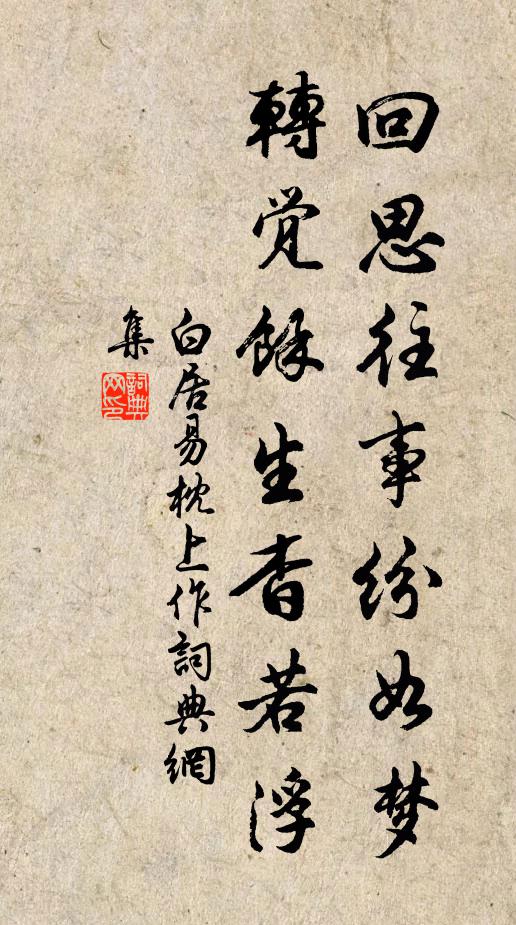 回思往事纷如梦
轉觉餘生杳若浮
白居易枕上作詞典網
集
詞典
网印